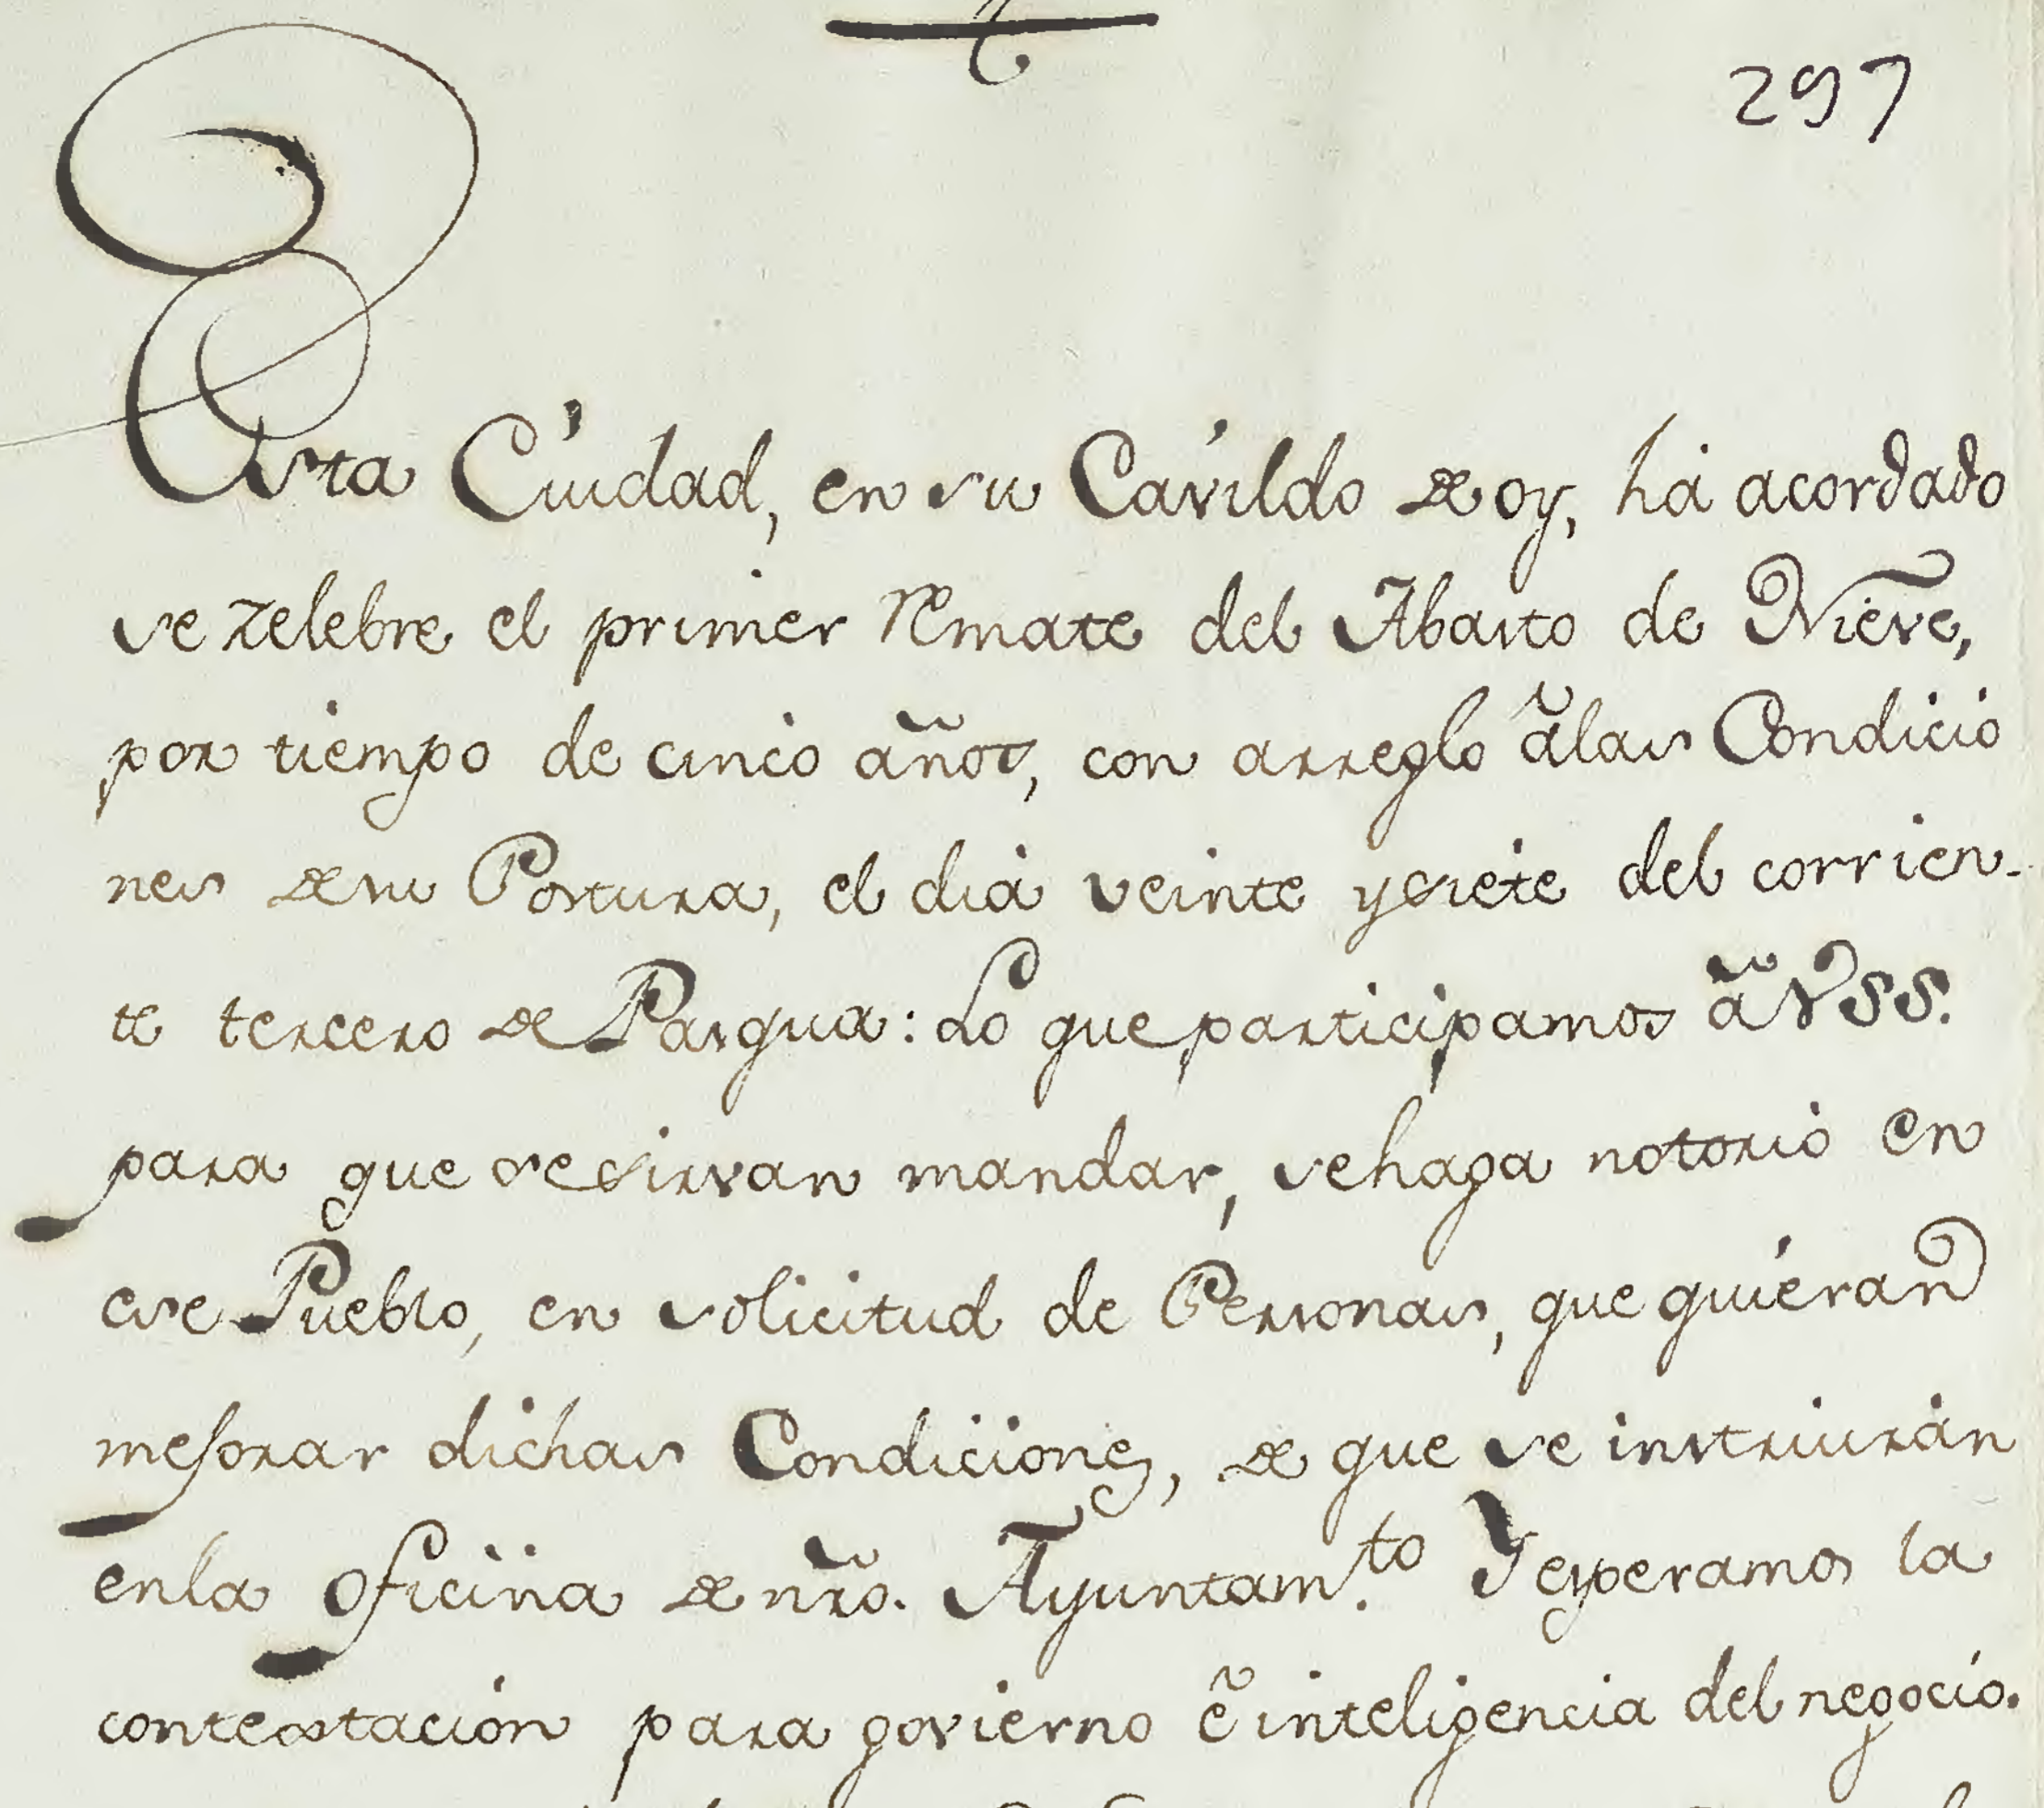 297
Esta Ciudad, en su Cavildo de oy, ha acordado
se zelebre el primer remate del Abasto de Nieve,
por tiempo de cinco años, con arreglo âlas Condicio
nes desu Postura, el dia veinte ysiete del corrien-
te tercero de Pasqua: Lo que participamos â VSS.
para que sesirvan mandar, sehaga notorio en
ese Pueblo, en solicitud de Personas, que quieran
mejorar dichas Condiciones, de que se instruirán
enla oficina de nr̃o. Ayuntam.to Y esperamos la
contestación para govierno ê inteligencia del negocio.